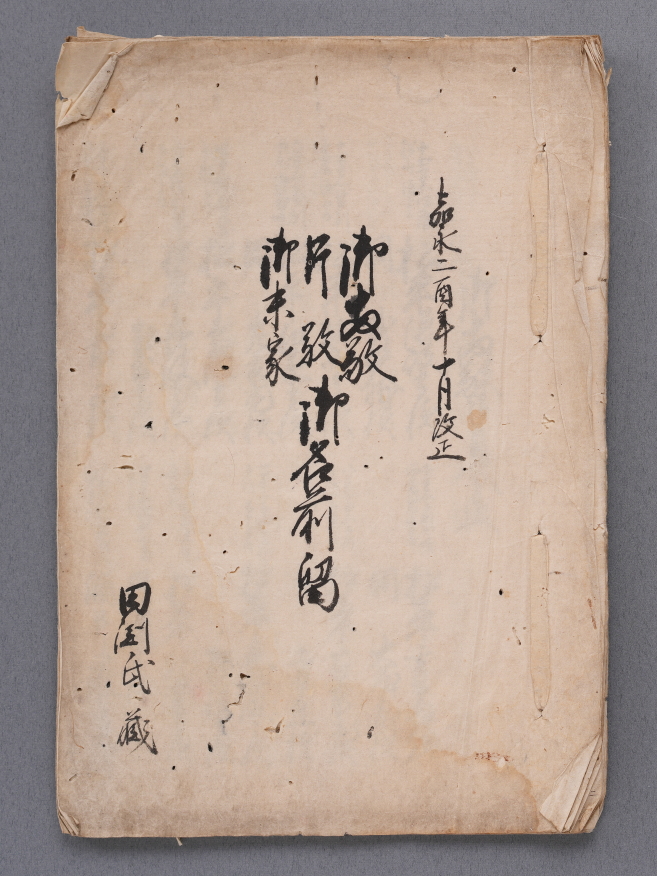 嘉永二酉年十月改正
御両敬
片敬
御末家
御名前留
田渕氏蔵